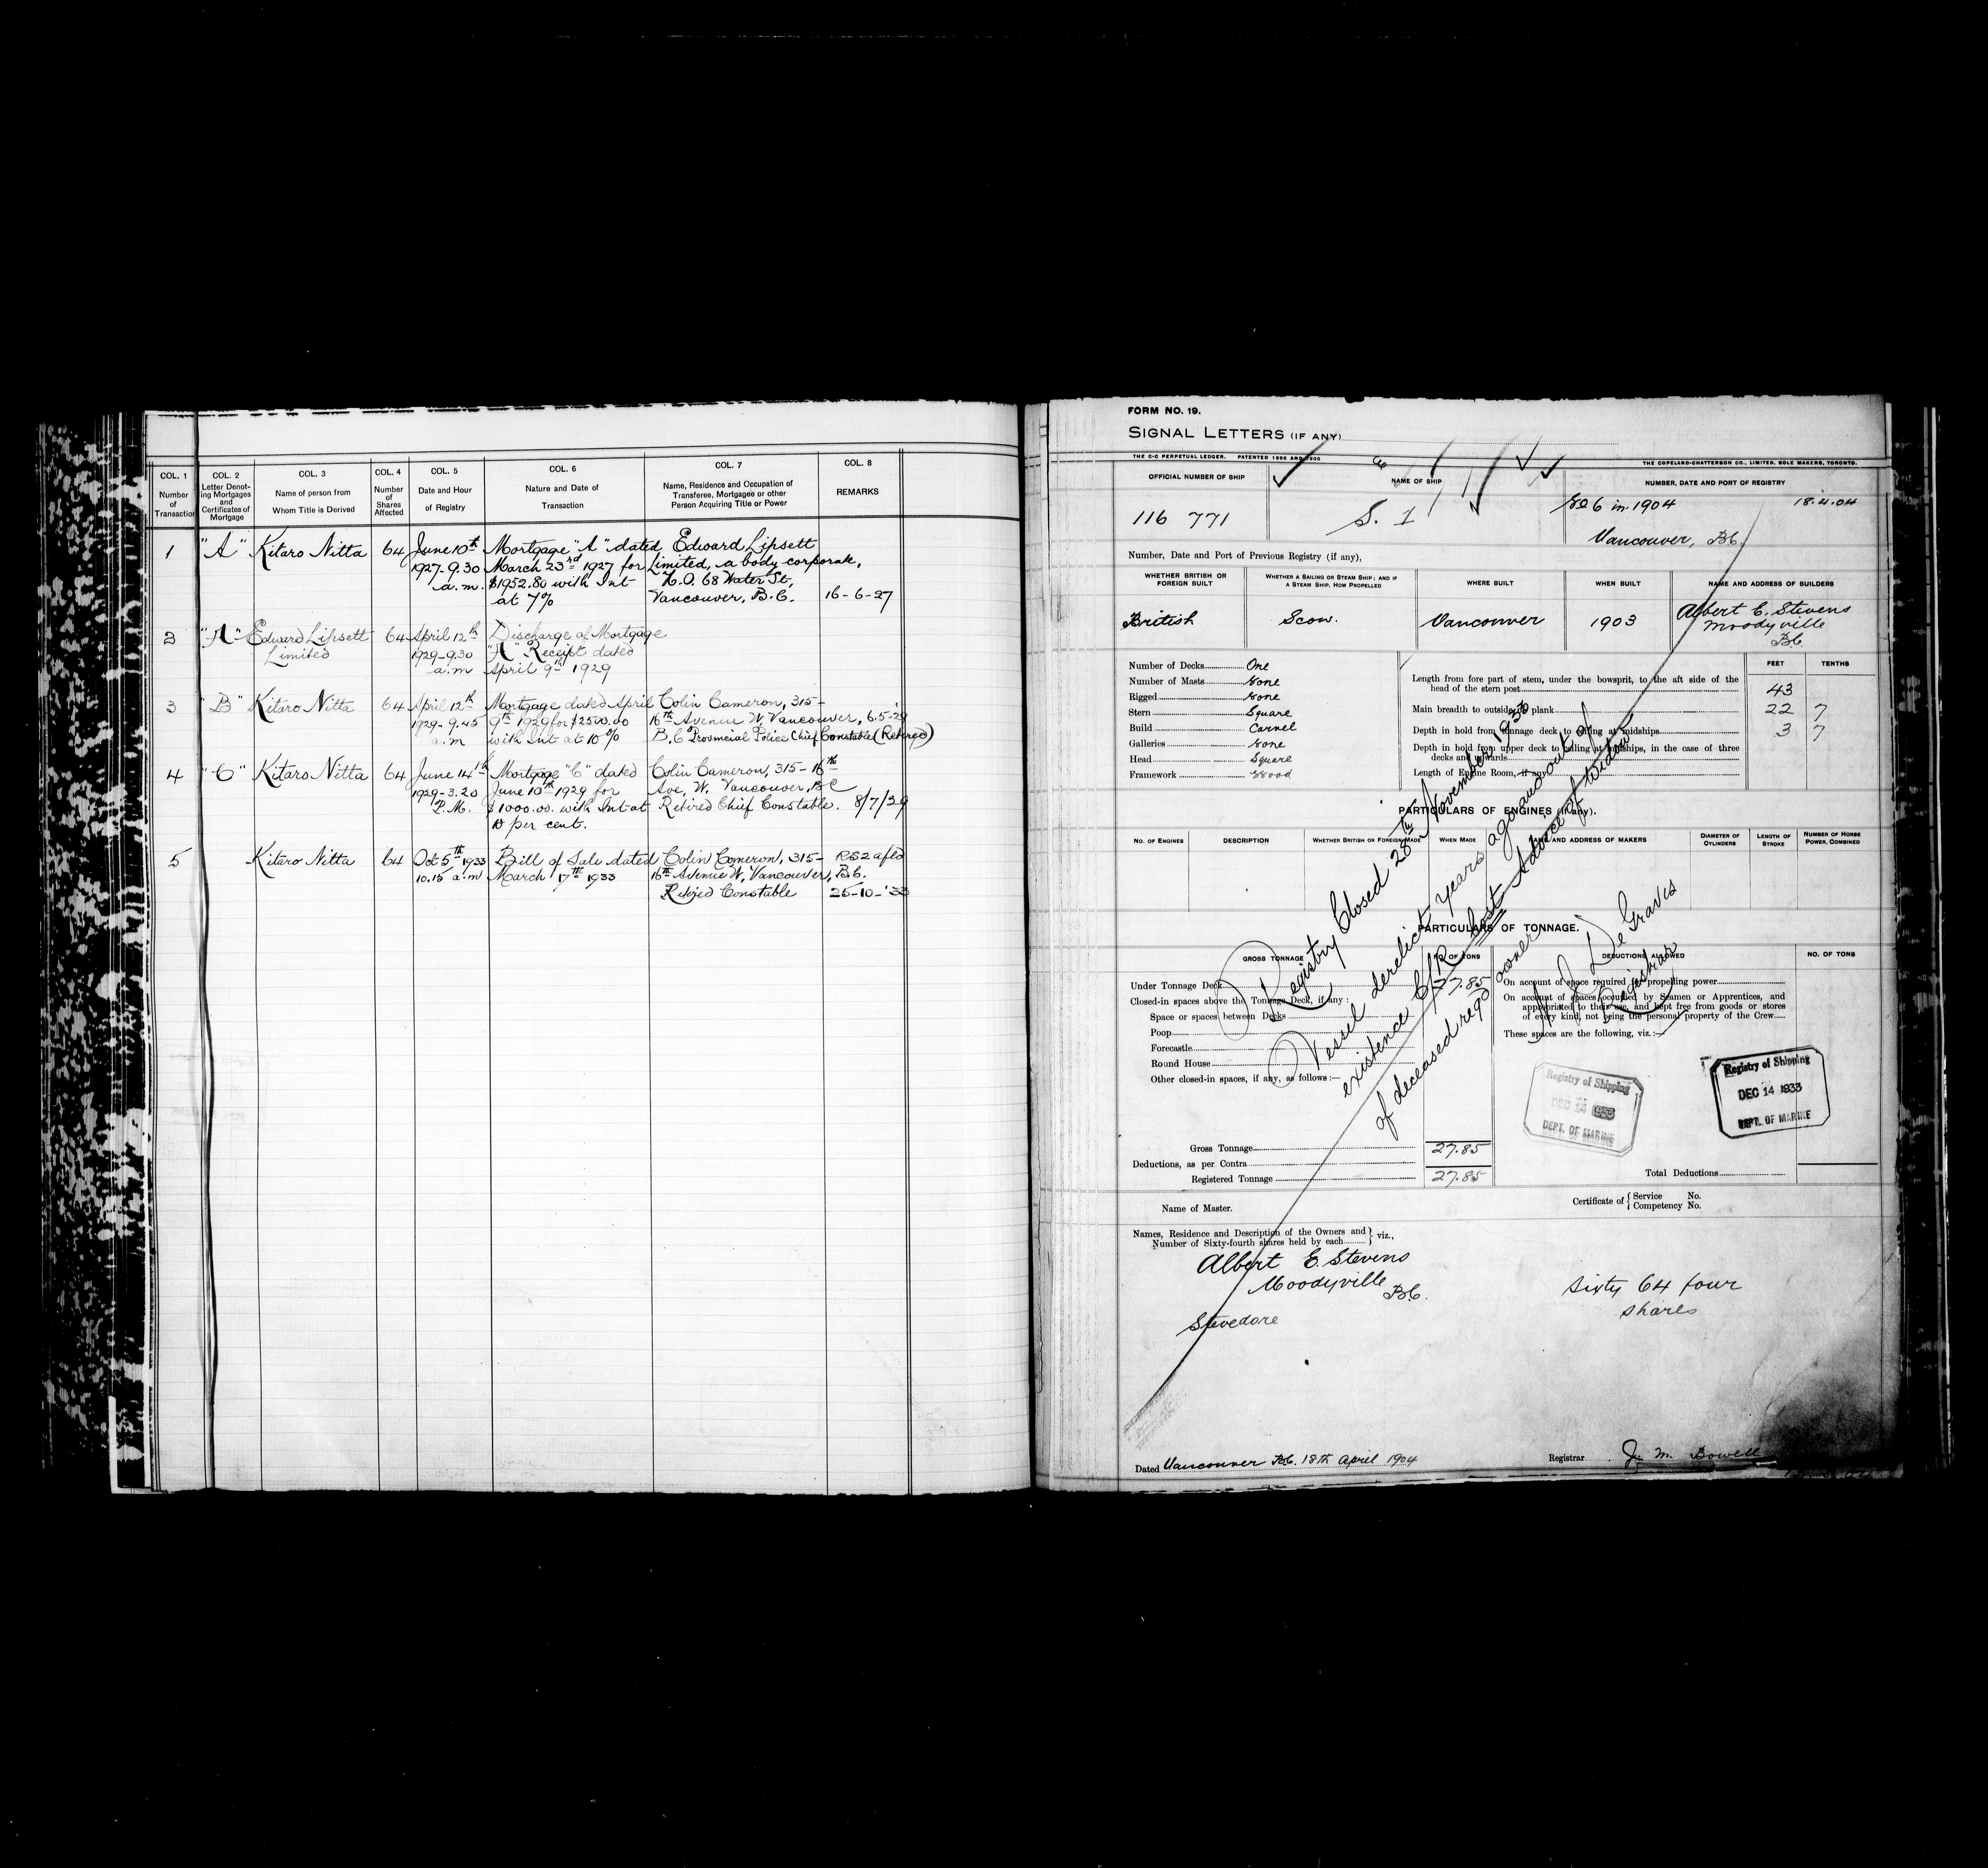 COL. 1
Number
of
Transaction
COL. 2
Letter Denot-
ing Mortgages
and
Certificates of
Mortgage
COL. 3
Name of person from
Whom Title is Derived
COL. 4
Number
of
Shares
Affected
COL. 5
Date and Hour
of Registry
COL. 6
Nature and Date of
Transaction
COL. 7
Name, Residence and Occupation of
Transferee, Mortgagee or other
Person Acquiring Title or Power
COL. 8
REMARKS
1 "A" Kitaro Nitta 64 June 10th Mortgage "A" dated Edward Lipsett
1927-9.30 March 23rd 1927 for Limited, a body corporate,
a.m. $1952.80 with Int No. 68 Water St,
at 7% Vancouver, B.C. 16-6-27
2 "A" Edward Lipsett 64 April 12th Discharge of Mortgage
Limited 1929-9.30 "A" Receipt dated
a.m April 9th 1929
3 "B" Kitaro Nitta 64 April 12th Mortgage dated April Colin Cameron, 315-
1929-9.45 9th 1929 for $2500.00 16th Avenue W. Vancouver, 6.5-29
a.m with Int at 10% B.C Provincial Police Chief Constable (Retired)
4 "C" Kitaro Nitta 64 June 14th Mortgage "C" dated Colin Cameron, 315-16th
1929-3.20 June 10th 1929 for Ave, W. Vancouver, B C
P.M. $1000.00. with Int at Retired Chief Constable. 8/7/29
10 per cent.
5 Kitaro Nitta 64 Oct 5th 1933 Bill of Sale dated Colin Cameron, 315-
10.15 a.m March 17th 1933 16th Avenue W, Vancouver, B.C.
Retired Constable 25-10-'33
FORM NO. 19.
SIGNAL LETTERS (IF ANY)
THE C-C PERPETUAL LEDGER. PATENTED 1896 AND 1900
THE COPELAND-CHATTERSON CO., LIMITED, SOLE MAKERS, TORONTO.
OFFICIAL NUMBER OF SHIP
NAME OF SHIP
NUMBER, DATE AND PORT OF REGISTRY
116 771 S. 1 No 6 in 1904 18.4.04
Vancouver, B.C.
Number, Date and Port of Previous Registry (if any),
WHETHER BRITISH OR
FOREIGN BUILT
WHETHER A SAILING OR STEAM SHIP; AND IF
A STEAM SHIP, HOW PROPELLED
WHERE BUILT
WHEN BUILT
NAME AND ADDRESS OF BUILDERS
British Scow. Vancouver 1903 Albert E. Stevens
Moodyville
B.C.
Number of Decks One
Number of Masts None
Rigged None
Stern Square
Build Carvel
Galleries None
Head Square
Framework Wood
FEET TENTHS
Length from fore part of stem, under the bowsprit, to the aft side of the
head of the stern post 43
Main breadth to outside of plank 22 7
Depth in hold from tonnage deck to ceiling at midships 3 7
Depth in hold from upper deck to ceiling at midships, in the case of three
decks and upwards
Length of Engine Room, if any
PARTICULARS OF ENGINES (if any).
NO. OF ENGINES
DESCRIPTION
WHETHER BRITISH OR FOREIGN MADE
WHEN MADE
NAME AND ADDRESS OF MAKERS
DIAMETER OF
CYLINDERS
LENGTH OF
STROKE
NUMBER OF HORSE
POWER, COMBINED
Registry Closed 28th November 1933
Vessel derelict years ago and out of
existence C/R Lost Advice of Widow
of deceased regd owner
De Graves
Registrar
PARTICULARS OF TONNAGE.
GROSS TONNAGE
NO. OF TONS
DEDUCTIONS ALLOWED
NO. OF TONS
Under Tonnage Deck 27.85
Closed-in spaces above the Tonnage Deck, if any:
Space or spaces between Decks
Poop
Forecastle
Round House
Other closed-in spaces, if any, as follows:—
On account of space required for propelling power
On account of spaces occupied by Seamen or Apprentices, and
appropriated to their use, and kept free from goods or stores
of every kind, not being the personal property of the Crew
These spaces are the following, viz.:—
Registry of Shipping
DEC 14 1933
DEPT. OF MARINE
Registry of Shipping
DEC 14 1933
DEPT. OF MARINE
Gross Tonnage 27.85
Deductions, as per Contra
Registered Tonnage 27.85
Total Deductions
Name of Master.
Certificate of { Service No.
Competency No.
Names, Residence and Description of the Owners and
Number of Sixty-fourth shares held by each } viz.,
Albert E. Stevens
Moodyville
B.C.
Stevedore
Sixty 64 four
shares
Dated Vancouver B.C. 18th April 1904
Registrar J. M. Bowell